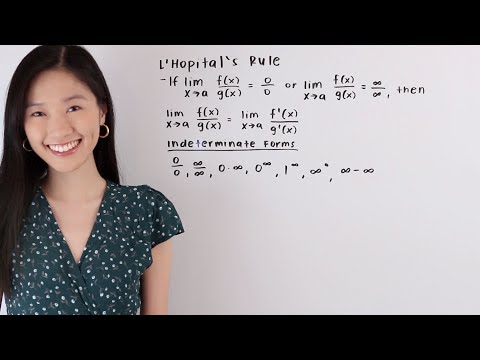 L'Hopital's Rule
- If lim x→a f(x)/g(x) = 0/0 or lim x→a f(x)/g(x) = ∞/∞, then
lim x→a f(x)/g(x) = lim x→a f'(x)/g'(x)
Indeterminate Forms
0/0, ∞/∞, 0·∞, 0^∞, 1^∞, ∞^0, ∞-∞